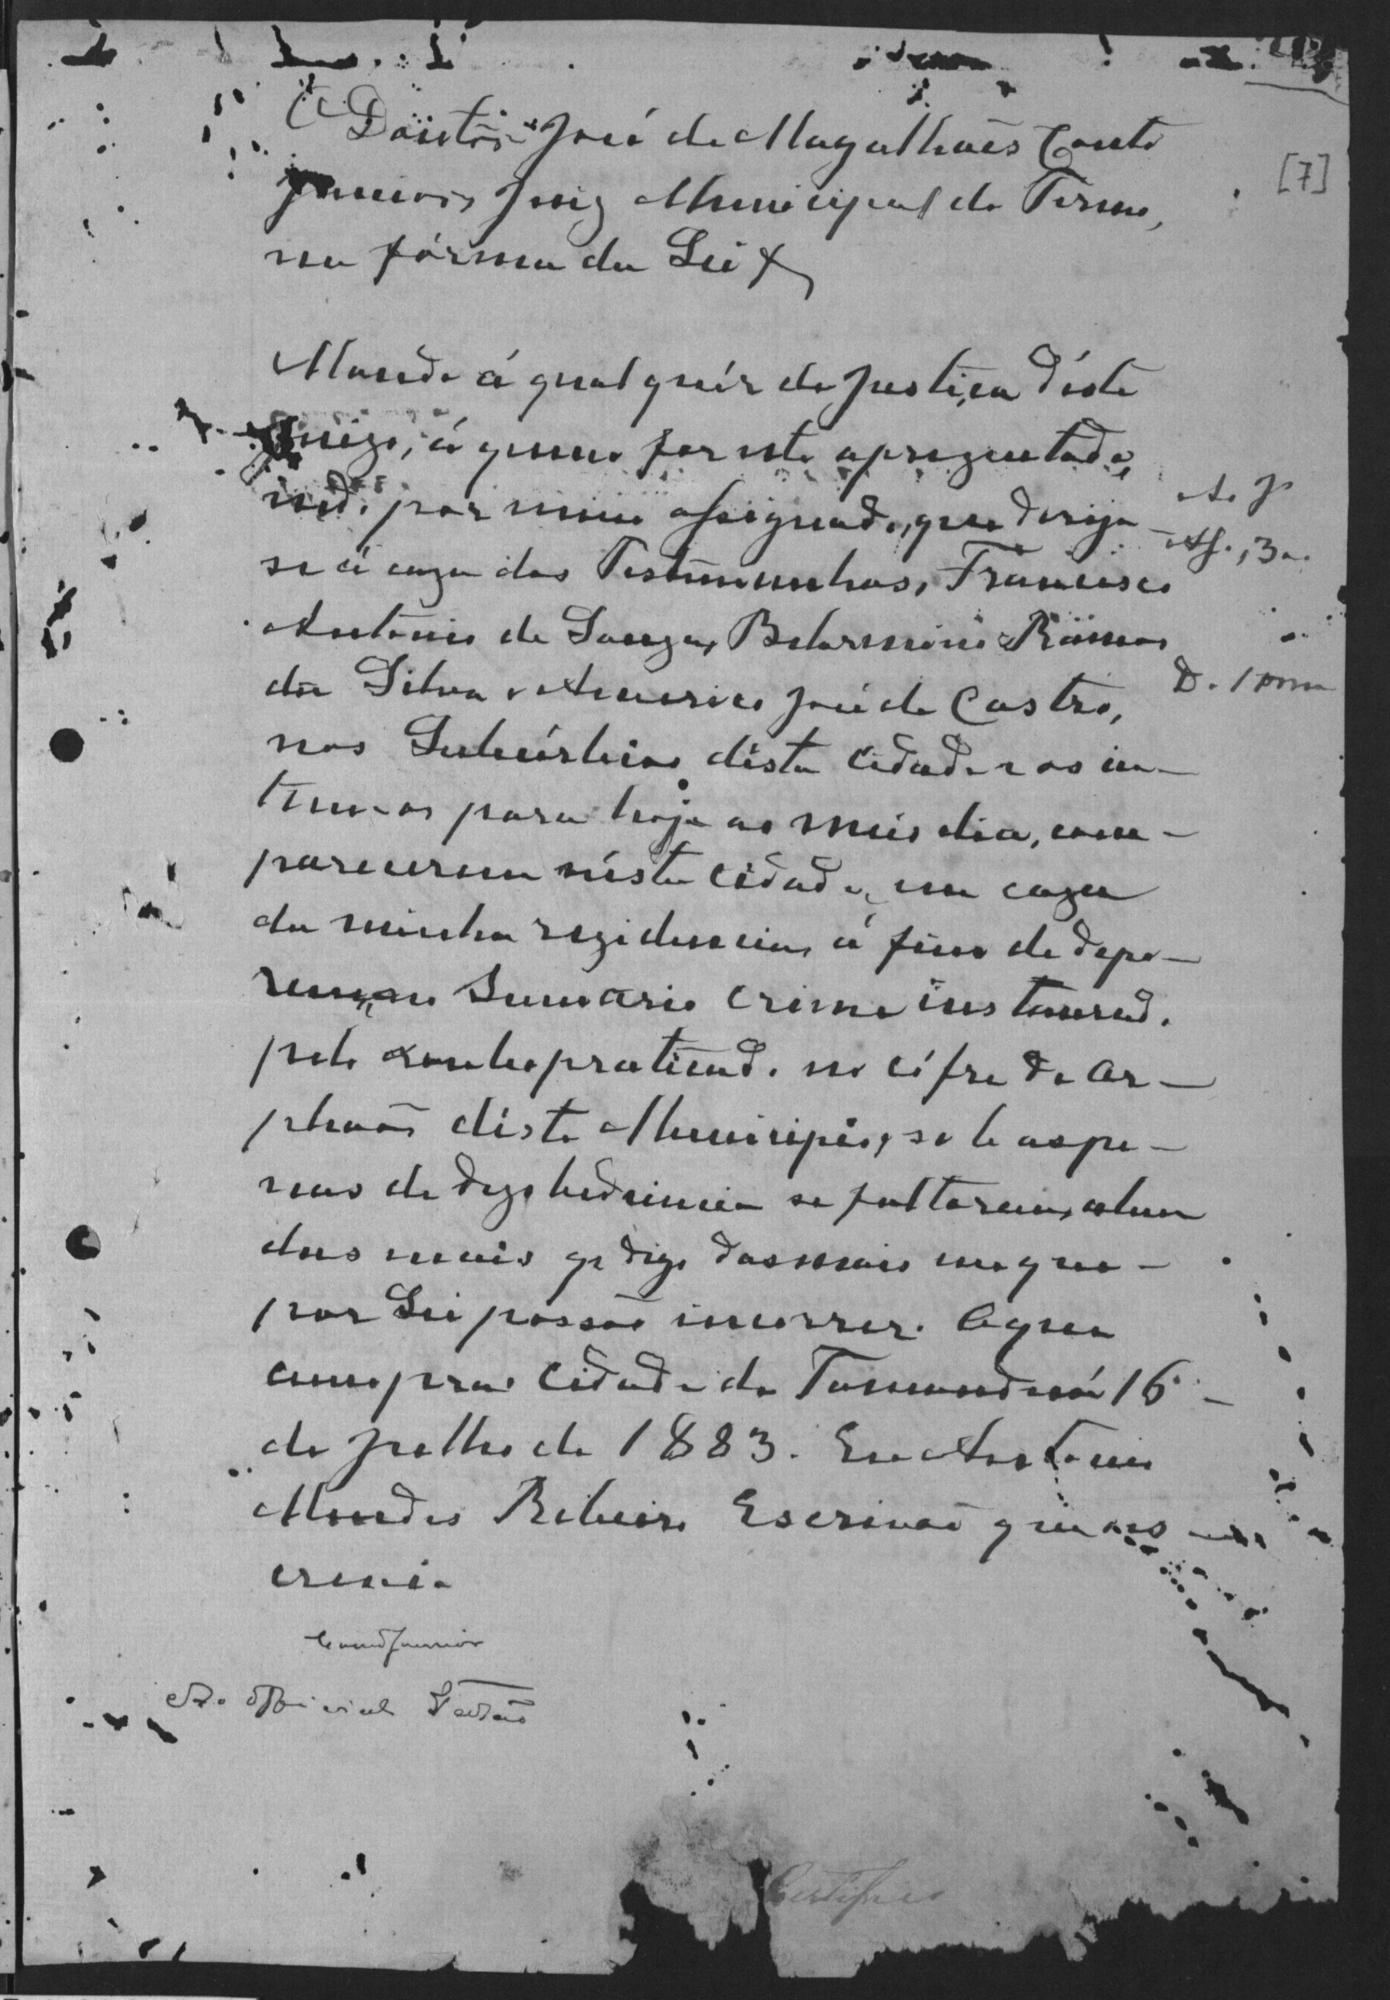 O Doutor José de Magalhães Couto
Junior, Juiz Municipal do Termo,
na fórma da Lei &
[7]
Mando á qualquér da justiça d'éste
Juizo, á quem for este aprezentado,
indo por mim assignado, que dirija-
se á caza das Testimunhas, Francisco
Antonio de Souza, Belarmino Ramos
da Silva e Americo José de Castro,
nos Subúrbios désta Cidade e os in-
timar para hoje ao meio dia, com-
parecerem nésta Cidade, em caza
da minha rezidencia, á fim de depo-
rem no Sumario crime instaurado
pelo roubo praticado no cófre de or-
phaõs déste Municipio, sob as pe-
nas de dezobediencia se faltarem, alem
das mais q digo das mais em que
por Lei possaõ incorrer. O que
cumpra. Cidade de Tamanduá 16
de Julho de 1883. Eu Antonio
Mendes Ribeiro Escrivaõ que o es
crevi
Couto Junior
Ao Official Galvaõ
D. 1
Certifico